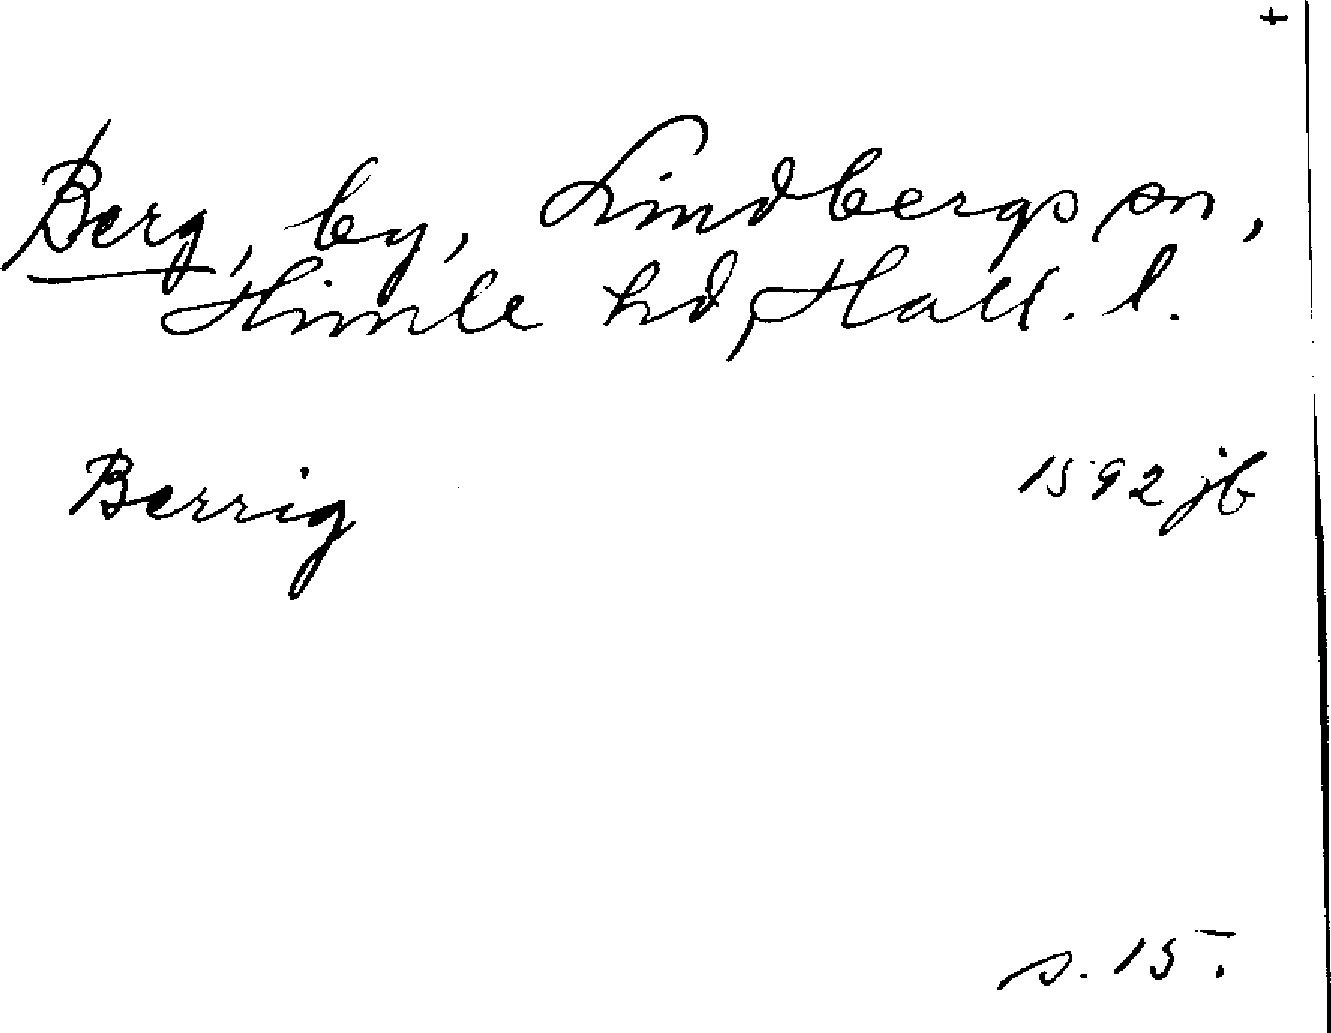 +
Berg, by, Lindbergs sn,
Himle hd, Hall. l.
Berrig 1592 jb
s. 15.